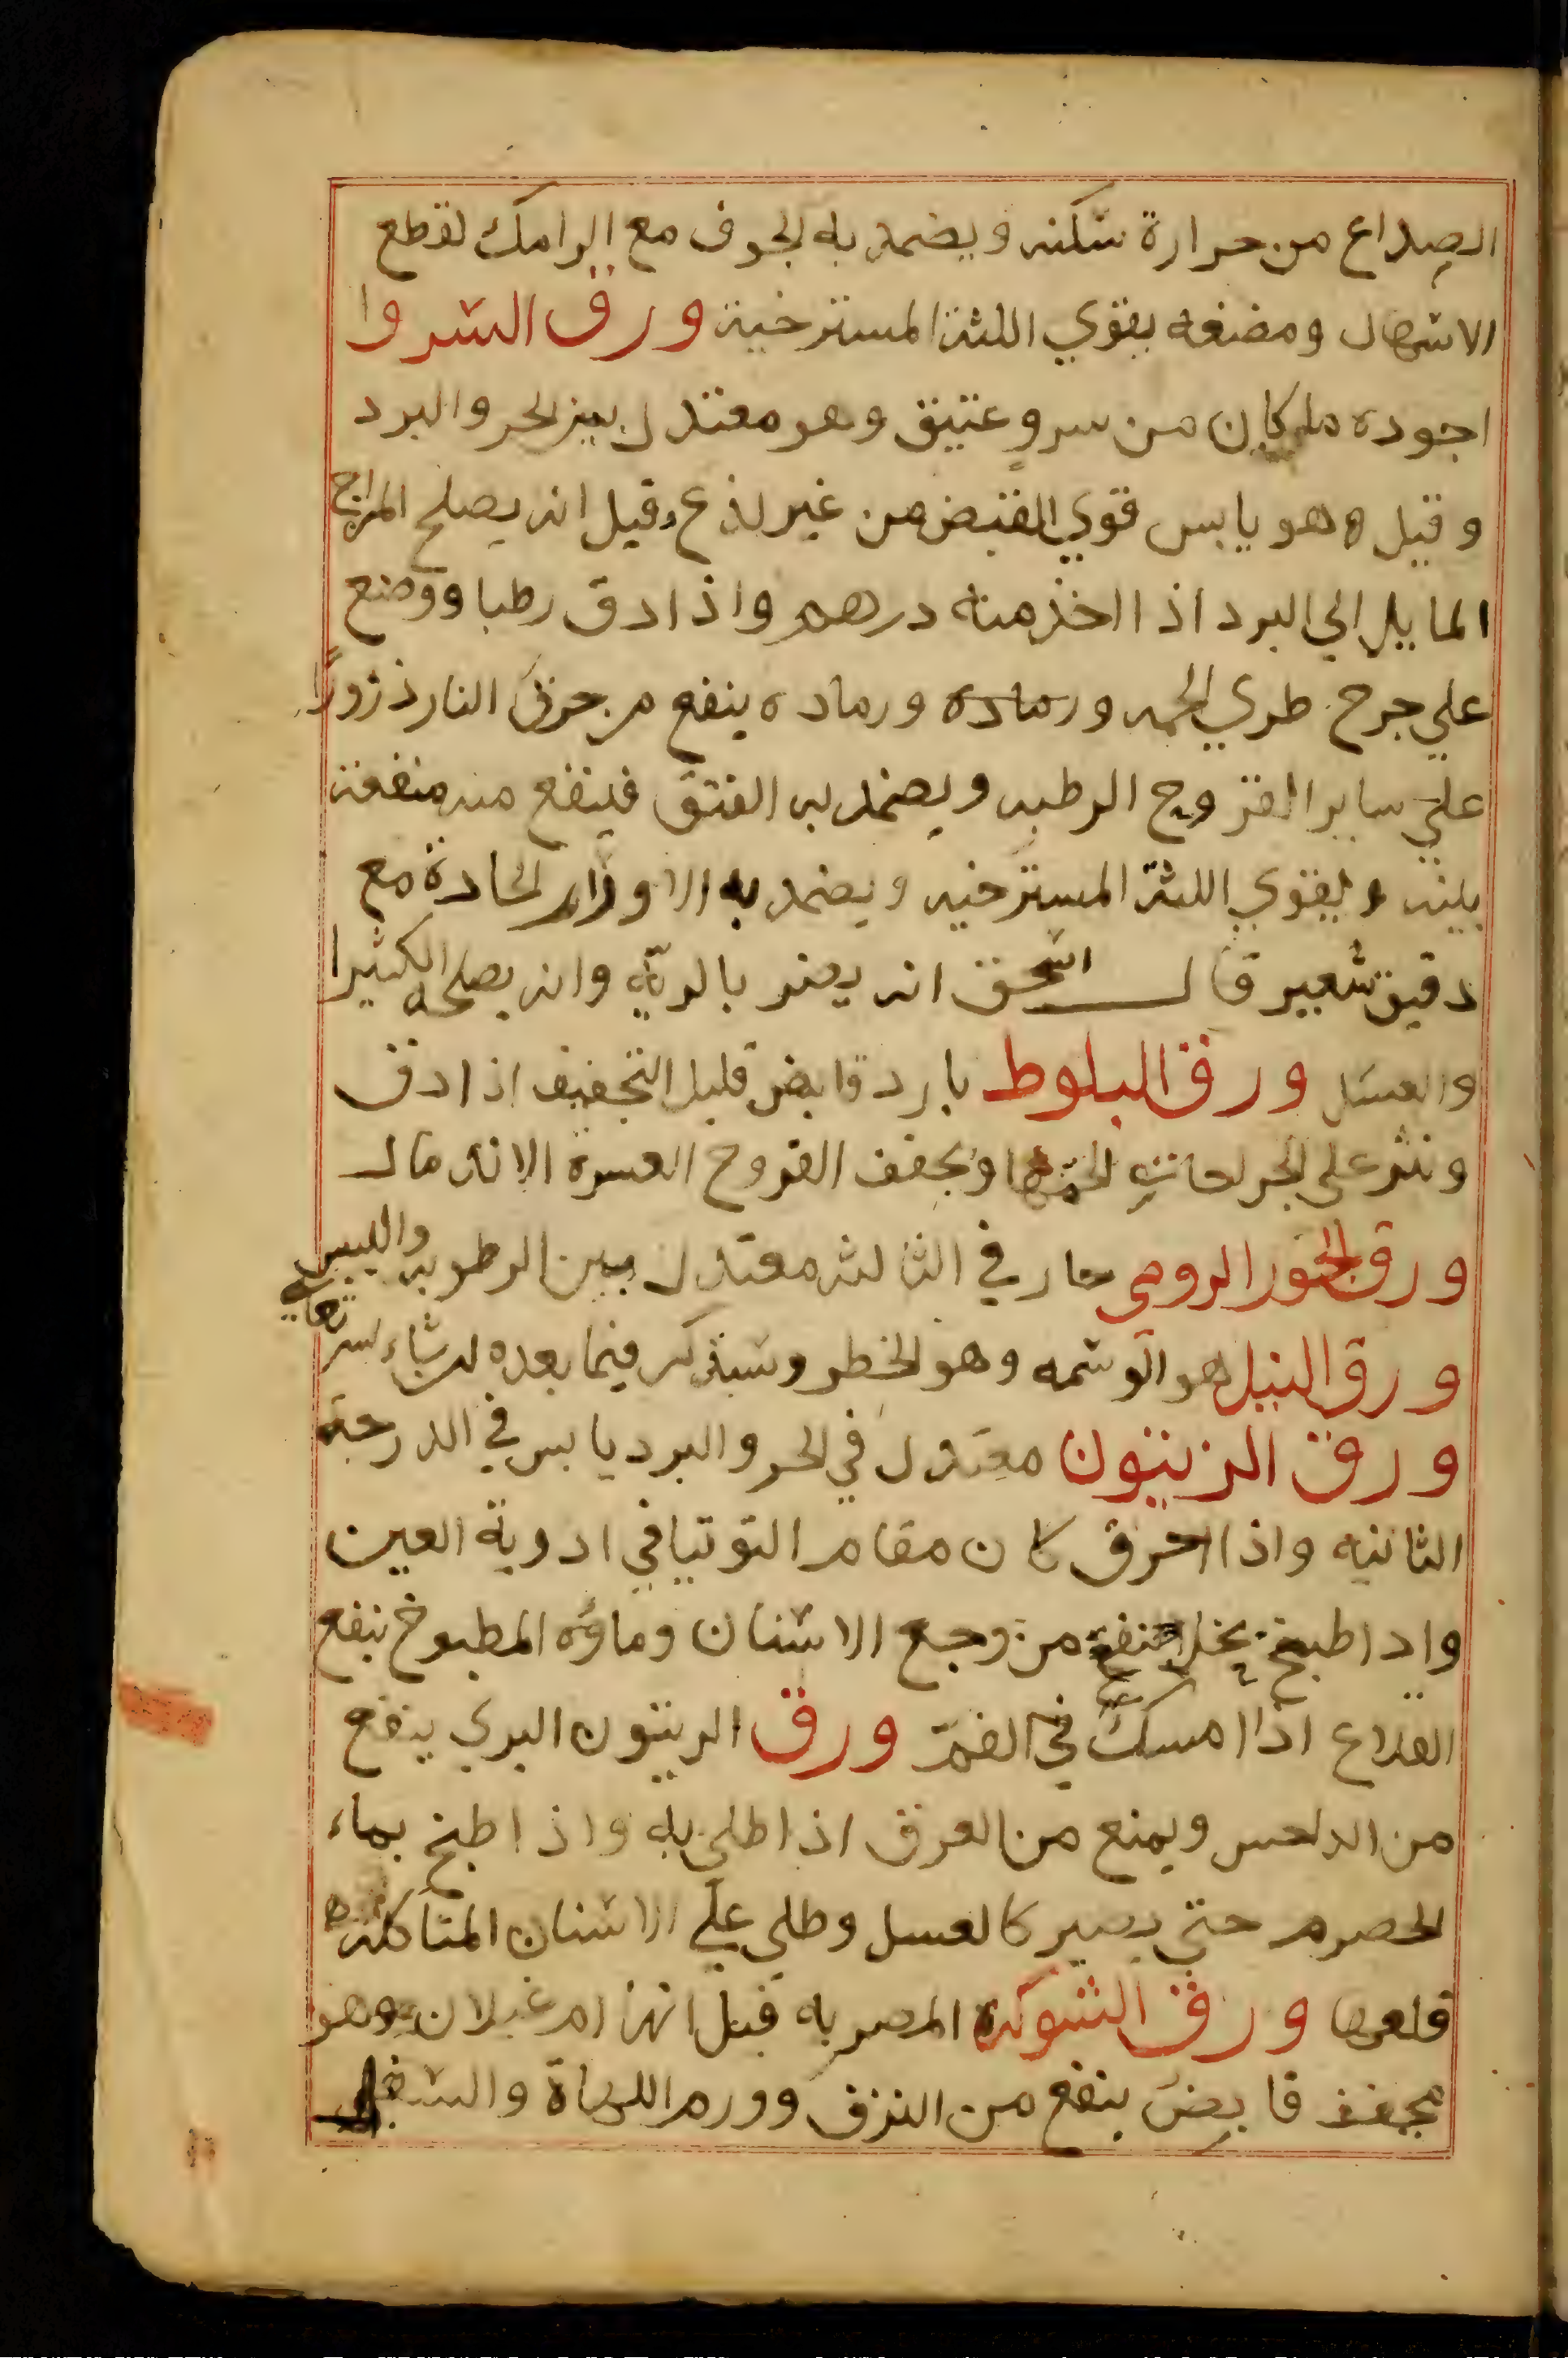 الصداع من حرارة سكنه ويضمد به الجوف مع الرامك لقطع
الاسهال ومضغه يقوي اللثة المسترخية ورق السرو ا
اجوده ما كان من سروٍ عتيق وهو معتدل بين الحر والبرد
وقيل وهو يابس قوي القبض من غير لذع وقيل انه يصلح المزاج
المايل الي البرد اذا اخذ منه درهم واذا دق رطبا ووضع
علي جرح طري الحمه ورماده ورماده ينفع من حرق النار ذرورًا
علي ساير القروح الرطبه ويضمد به الفتق فينفع منه منفعة
بينه ويقوي اللثة المسترخيه ويضمد به الاورام الحادة مع
دقيق شعير قال اسحق انه يضر بالريّه وانه يصلحه الكثيرا
والعسل ورق البلوط بارد قابض قليل التجفيف اذا دق
ونثر على الجراحات الحمها ويجفف القروح العسره الاندمال
ورق الحور الرومى حار في الثالثه معتدل بين الرطوبه واليبس
ورق النيل هو الوسمه وهو الخطر وسيذكر فيما بعده ان شاء الله تعالي
ورق الزيتون معتدل في الحر والبرد يابس في الدرجة
الثانيه واذا احرق كان مقام التوتيا في ادوية العين
واذا طبخ بخل نفع من وجع الاسنان وماؤه المطبوخ ينفع
القلاع اذا امسك في الفمّ ورق الزيتون البري ينفع
من الداحس ويمنع من العرق اذا طلي به واذا طبخ بماء
الحصرم حتي يصير كالعسل وطلي علي الاسنان المتاكله
قلعها ورق الشوكه المصريه قيل انها ام غيلان وهو
مجفف قابض ينفع من النزف وورم اللهاة والسفل